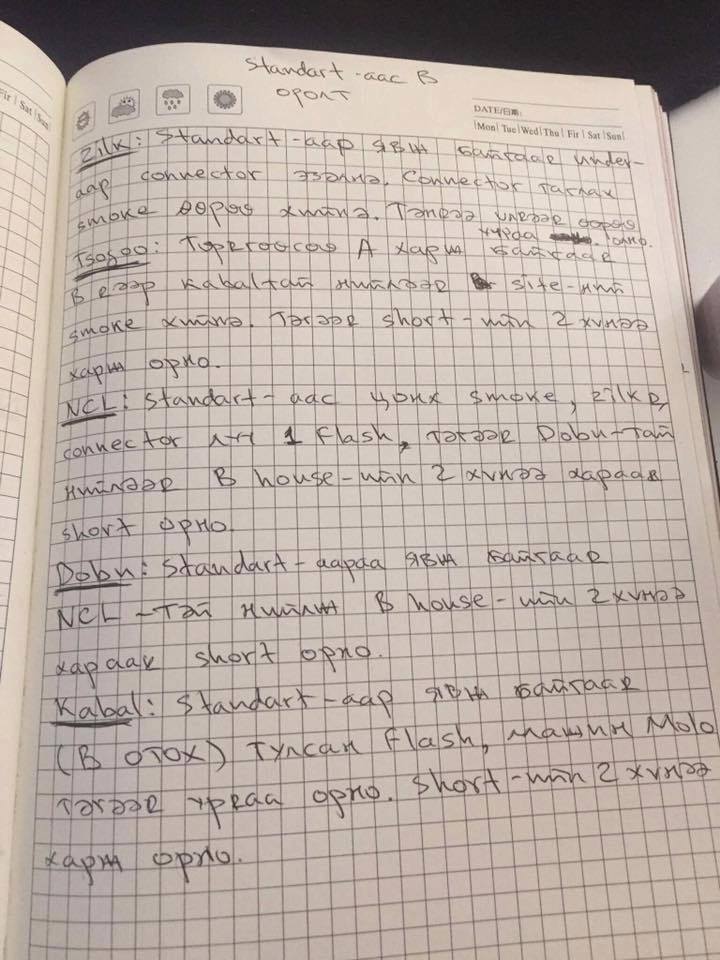 Fir | Sat | Sun|
Standart-аас B
оролт
DATE/日期:
|Mon| Tue|Wed|Thu| Fir | Sat | Sun|
Zilk: Standart-аар явж байгаад under-
аар connector эзэлнэ. Connector таглах
smoke өөрөө хийнэ. Тэгээд үлдээд өөрөө
түрдаа орно.
Tsogoo: Торгоосоо A харж байгаад
B дээр Kabalтай нийлээд site-ний
smoke хийнэ. Тэгээд short-ийн 2 хүнээ
харж орно.
NCL: Standart-аас цонх smoke, zilkд
connector луу 1 Flash, тэгээд Dobu-тай
нийлээд B house-ийн 2 хүнээ хараад
short орно.
Dobu: Standart-аараа явж байгаад
NCL-тэй нийлж B house-ийн 2 хүнээ
хараад short орно.
Kabal: Standart-аар явж байгаад
(B отох) тулсан Flash, машин Molo
тэгээд урдаа орно. Short-ийн 2 хүнээ
харж орно.